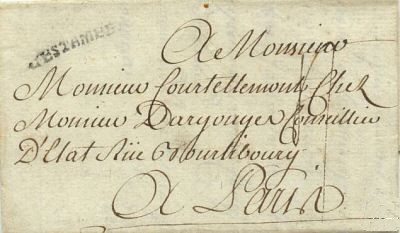 STE MENE
A Monsieur
Monsieur Courtellemont Chez
Monsieur Dargouges Conseiller
D'Etat Rüe Bourlibourg
A Paris